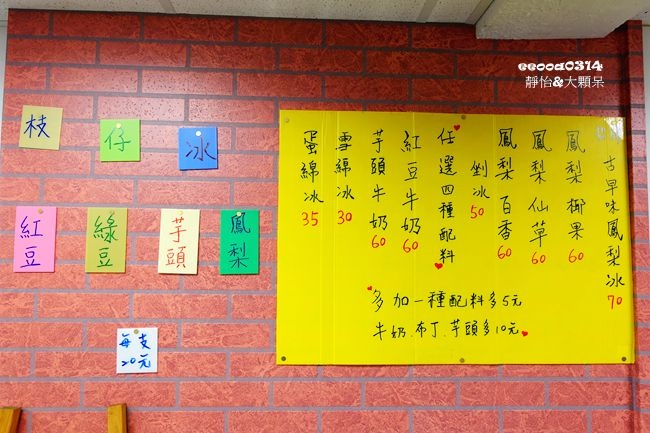 eeooa0314
靜怡&大顆呆
枝仔冰
紅豆
綠豆
芋頭
鳳梨
每支
20元
古早味鳳梨冰 70
鳳梨椰果 60
鳳梨仙草 60
鳳梨百香 60
剉冰 50
任選四種配料
紅豆牛奶 60
芋頭牛奶 60
雪綿冰 30
蛋綿冰 35
多加一種配料多5元
牛奶、布丁、芋頭多10元。